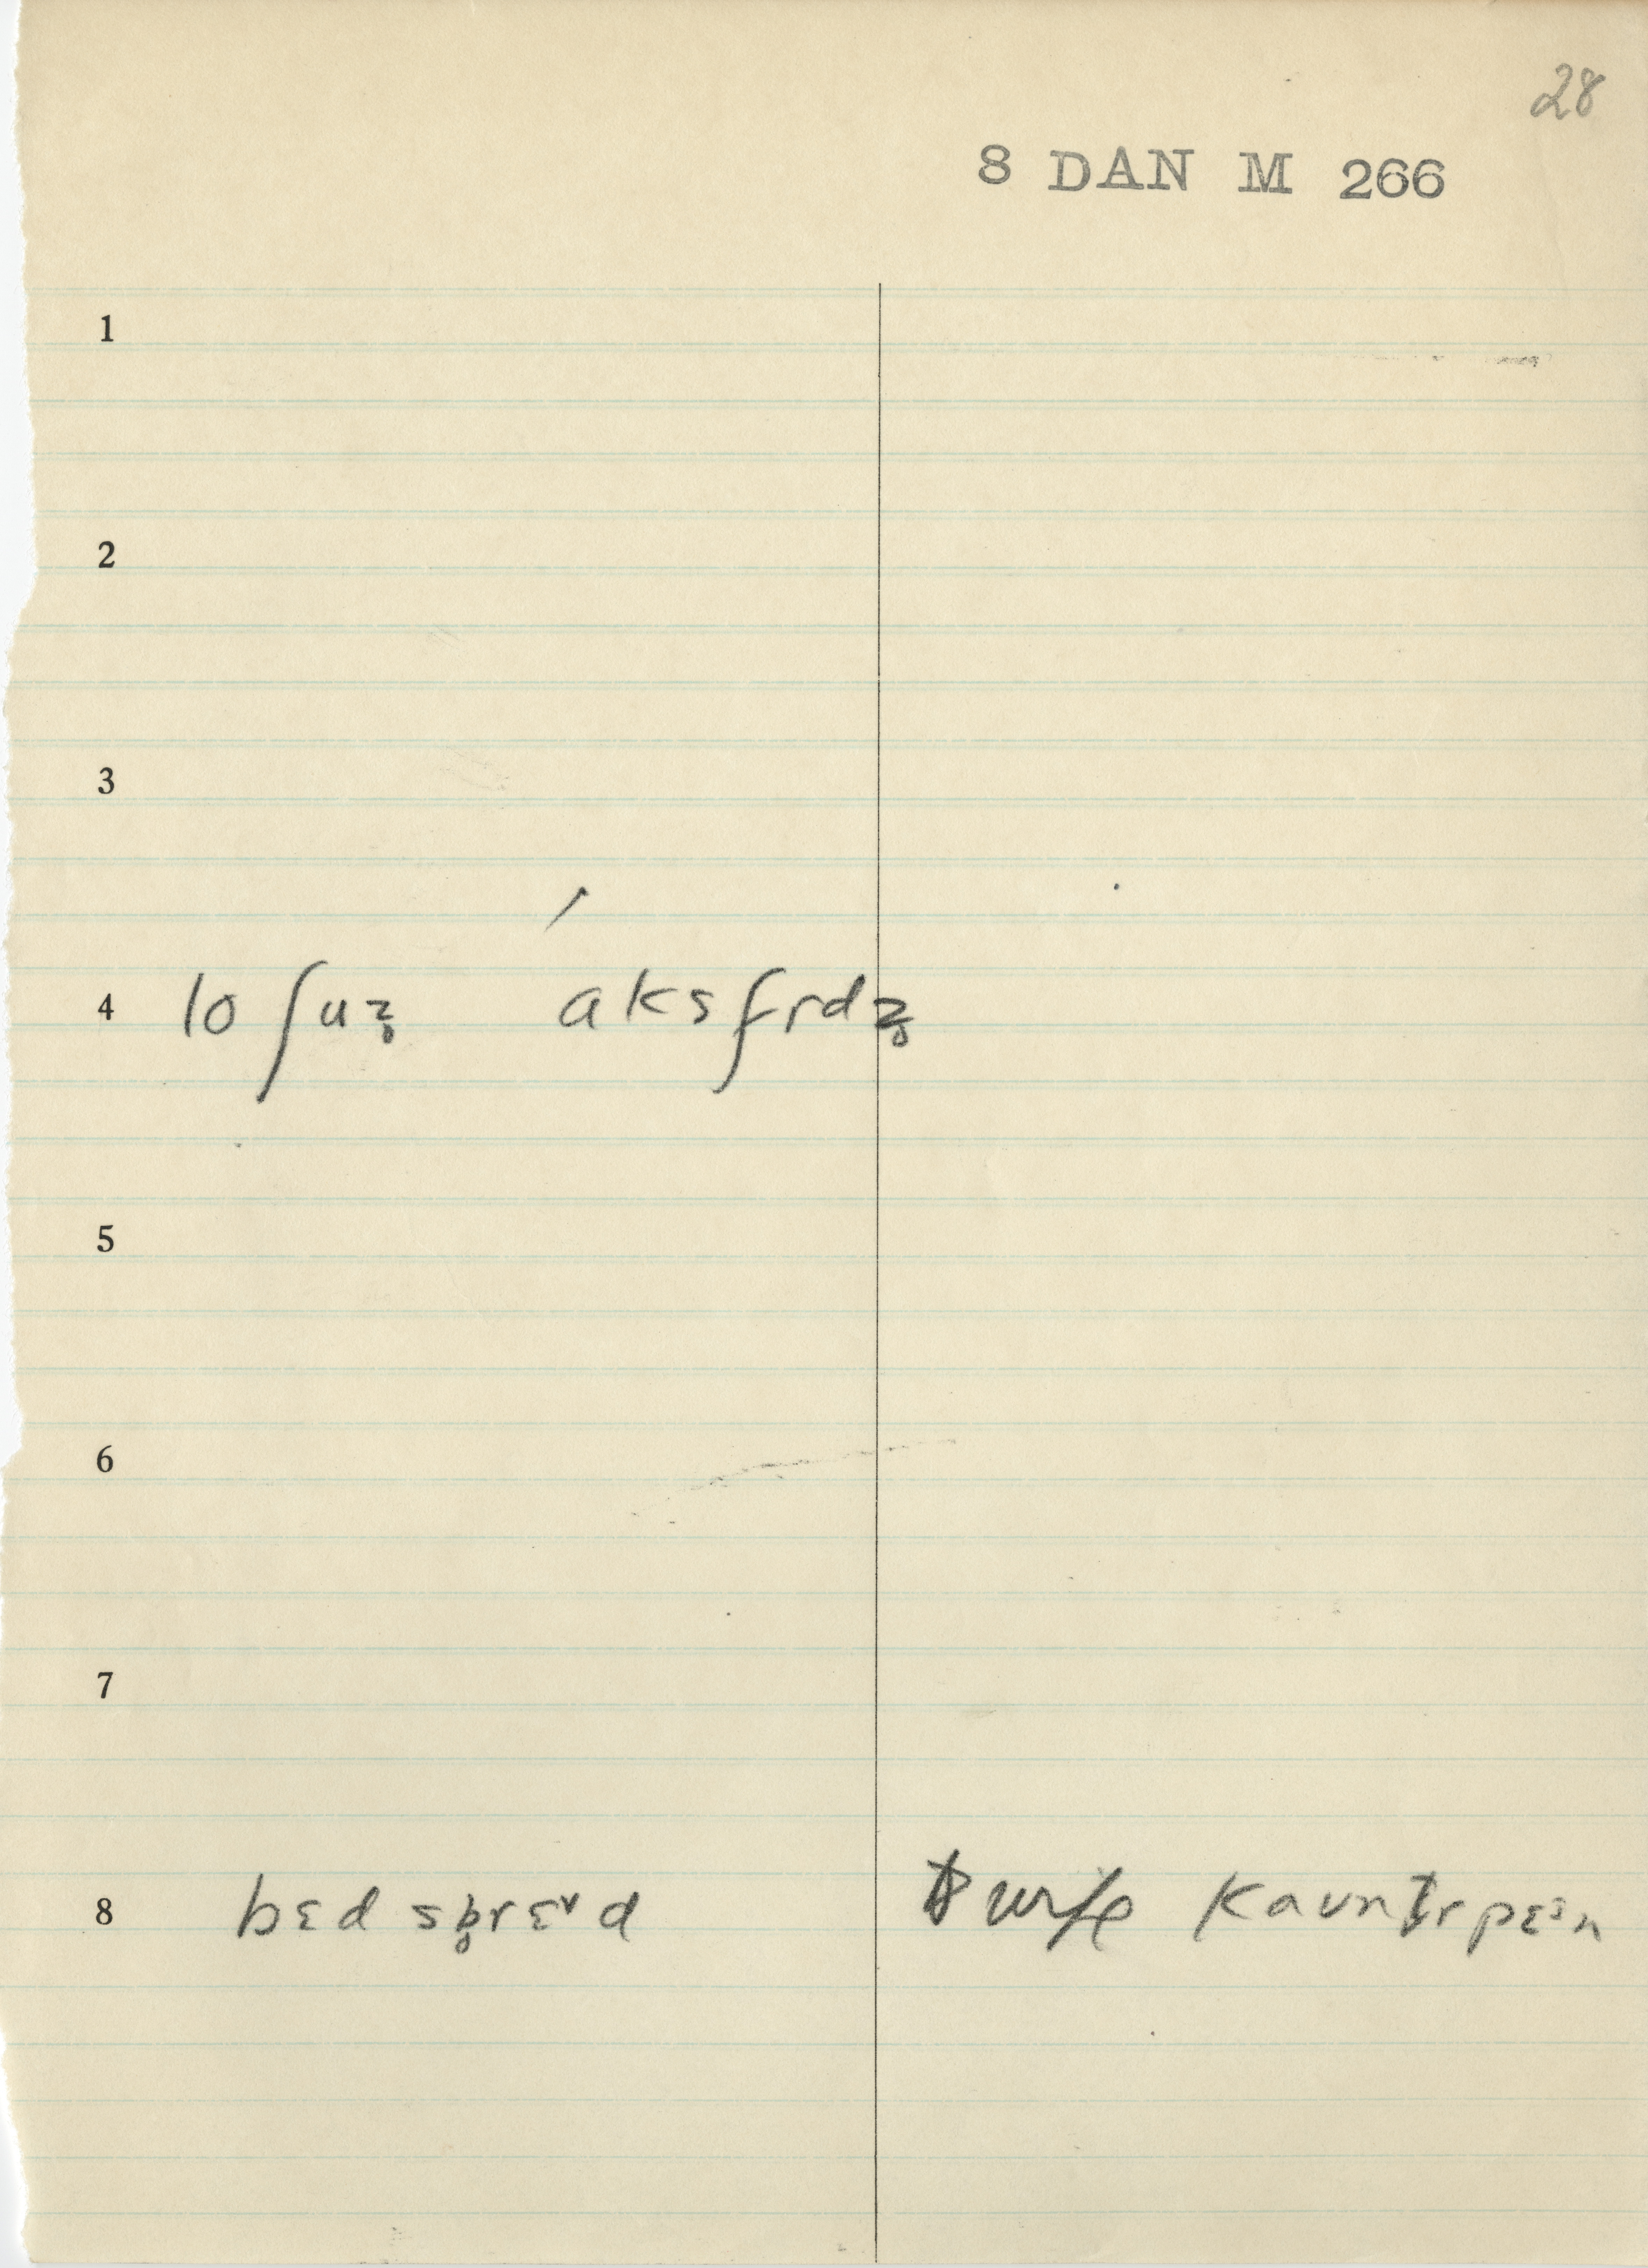 28
8 DAN M 266
1
2
3
4 lo ʃuz̥ ˊaksfrdz̥
5
6
7
8 bɛd sb̥rɛᵛd wife kaʊntrpɛᵊn